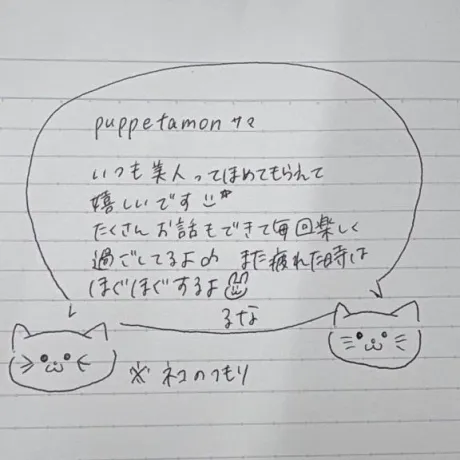 puppetamonサマ
いつも美人ってほめてもらえて
嬉しいです
たくさんお話もできて毎回楽しく
過ごしてるよ♪ また疲れた時は
ほぐほぐするよ
るな
※ネコのつもり